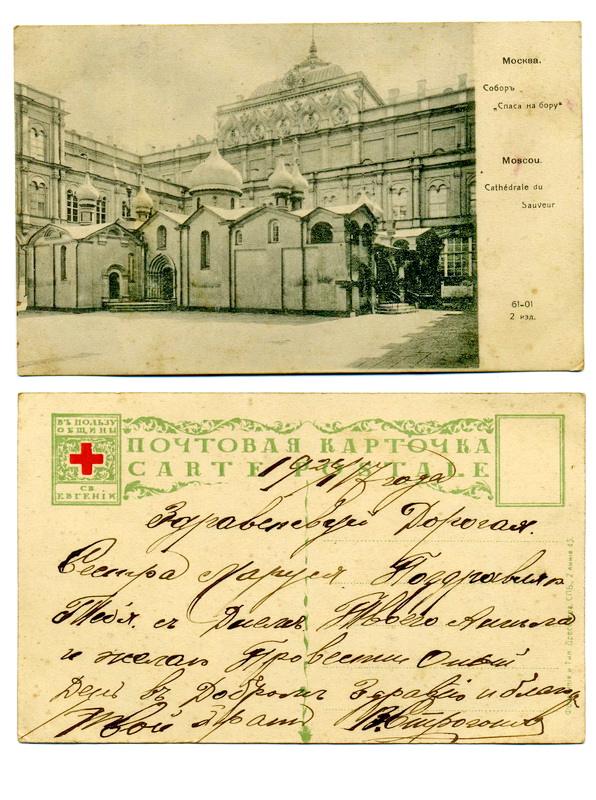 Москва.
Соборъ
„Спаса на бору“
Moscou.
Cathédrale du
Sauveur
61-01
2 изд.
ВЪ ПОЛЬЗУ
ОБЩИНЫ
СВ.
ЕВГЕНІИ
ПОЧТОВАЯ КАРТОЧКА
CARTE POSTALE
года
Здравствуй Дорогая.
Сестра Маруся Поздравляю
Тебя. съ Днемъ Твоего Ангела
и желаю Провести Оный
День въ Добромъ Здравіи и благо
Твой братъ